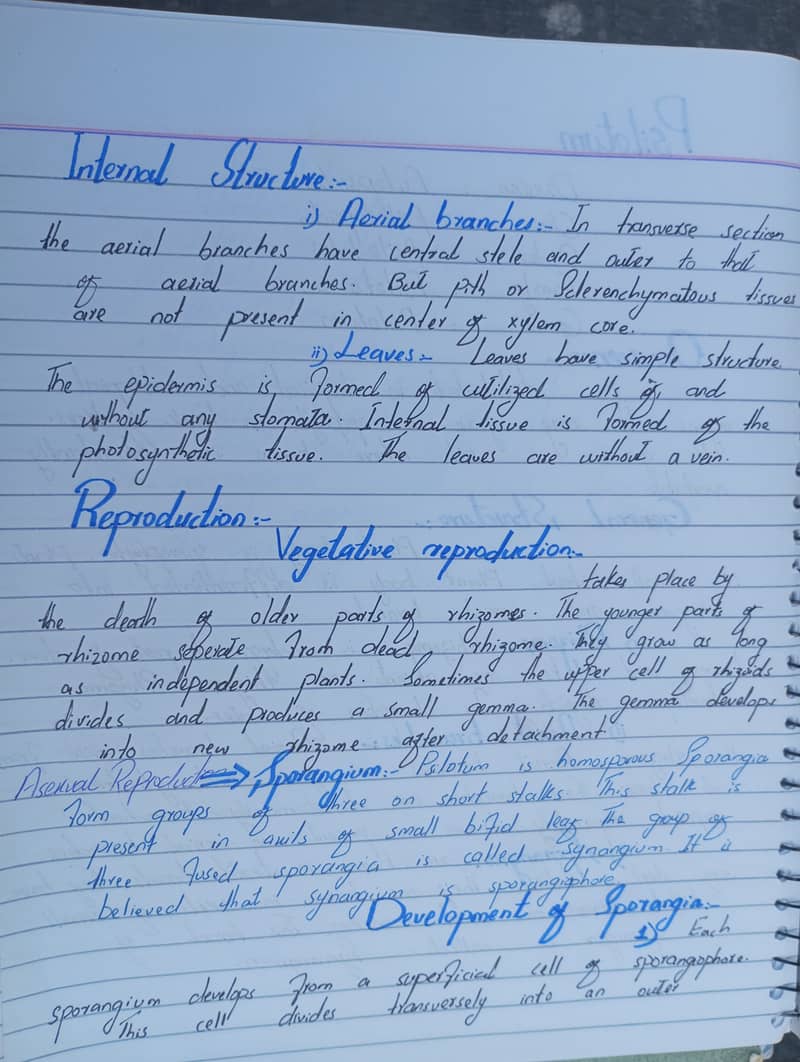 Internal Structure:-
i) Aerial branches:- In transverse section
the aerial branches have central stele and outer to that
of aerial branches. But pith or Sclerenchymatous tissues
are not present in center of xylem core.
ii) Leaves:- Leaves have simple structure
The epidermis is formed of cutilized cells of, and
without any stomata. Internal tissue is formed of the
photosynthetic tissue. The leaves are without a vein.
Reproduction:-
Vegetative reproduction:-
takes place by
the death of older parts of rhizomes. The younger parts of
rhizome seperate from dead rhizome. They grow as long
as independent plants. Sometimes the upper cell of rhizoids
divides and produces a small gemma. The gemma develops
into new rhizome after detachment
Asexual Reproduction => Sporangium:- Psilotum is homosporous Sporangia
form groups of three on short stalks This stalk is
present in axils of small bifid leaf The group of
three fused sporangia is called synangium It is
believed that synangium is sporangiophore
Development of Sporangia:-
1) Each
sporangium develops from a superficial cell of sporangiophore.
This cell divides transversely into an outer